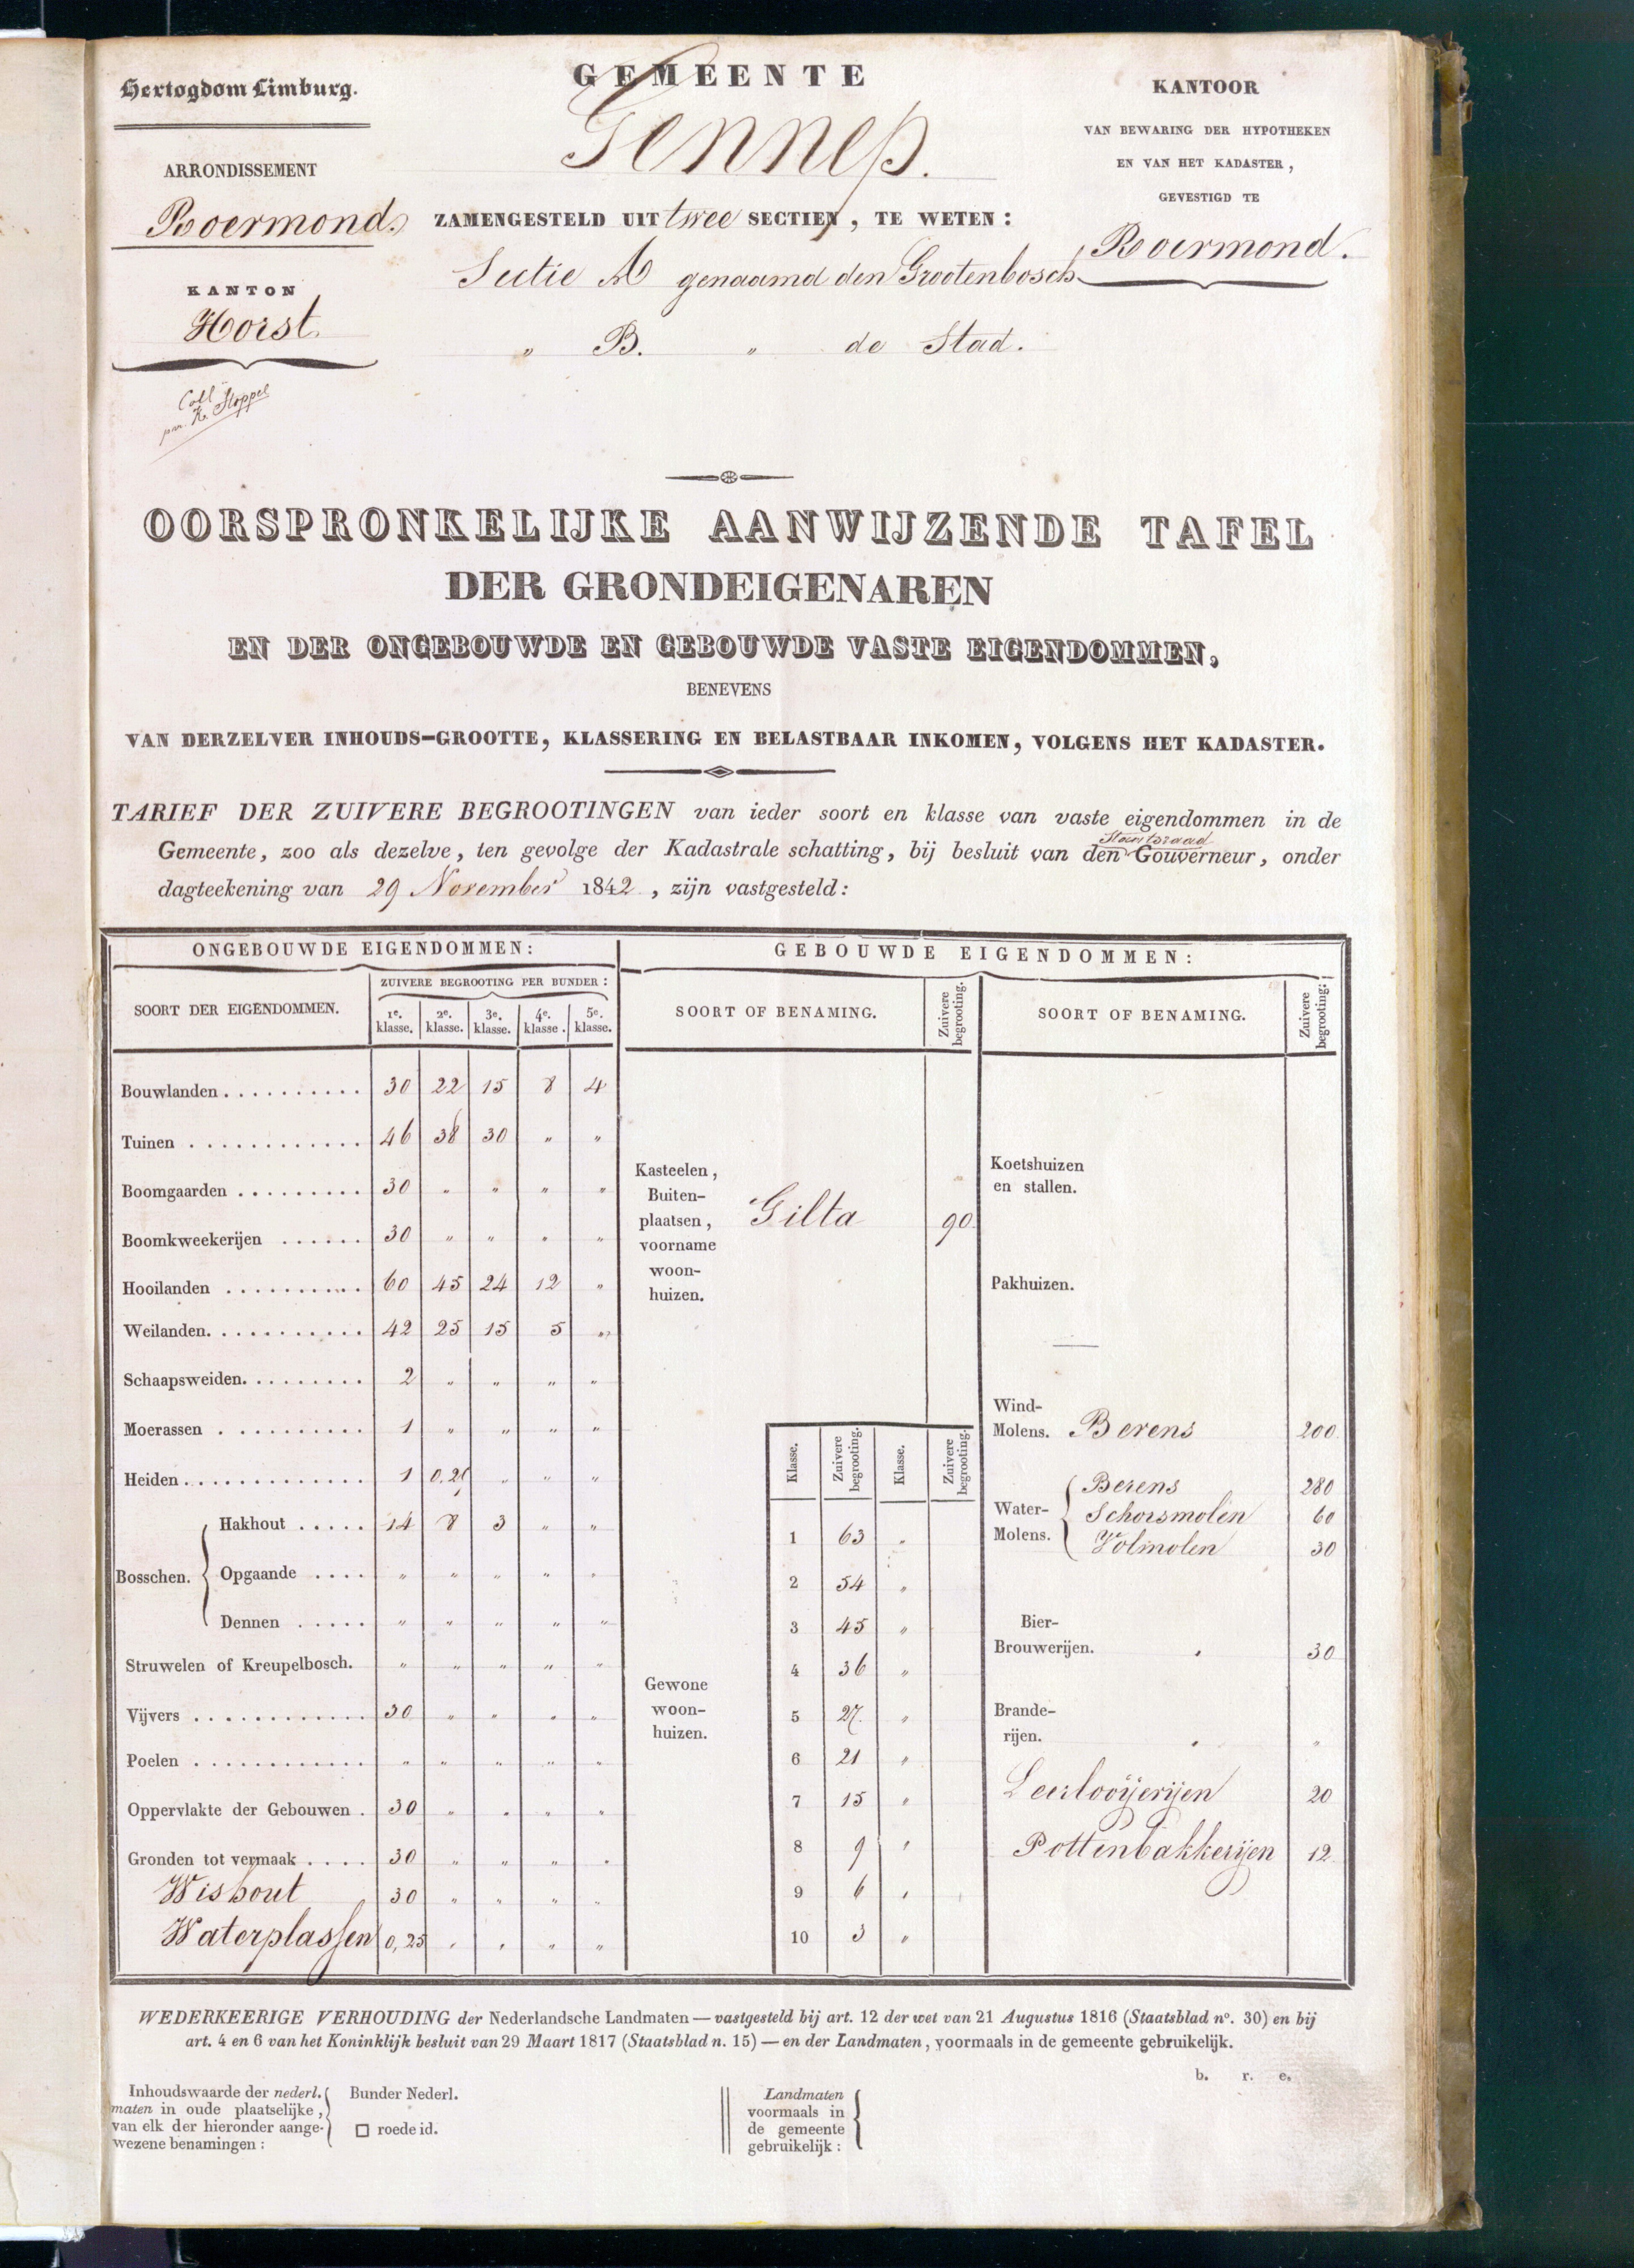 Hertogdom Limburg.
ARRONDISSEMENT
Roermond.
KANTON
Horst.
Coll
par. K. Stoppel
GEMEENTE
Gennep.
ZAMENGESTELD UIT twee SECTIEN, TE WETEN:
Sectie A genaamd den Grootenbosch
„ B. „ de Stad.
KANTOOR
VAN BEWARING DER HYPOTHEKEN
EN VAN HET KADASTER,
GEVESTIGD TE
Roermond.
OORSPRONKELIJKE AANWIJZENDE TAFEL
DER GRONDEIGENAREN
EN DER ONGEBOUWDE EN GEBOUWDE VASTE EIGENDOMMEN,
BENEVENS
VAN DERZELVER INHOUDS-GROOTTE, KLASSERING EN BELASTBAAR INKOMEN, VOLGENS HET KADASTER.
TARIEF DER ZUIVERE BEGROOTINGEN van ieder soort en klasse van vaste eigendommen in de
Staatsraad
Gemeente, zoo als dezelve, ten gevolge der Kadastrale schatting, bij besluit van den Gouverneur, onder
dagteekening van 29 November 1842, zijn vastgesteld:
ONGEBOUWDE EIGENDOMMEN:
SOORT DER EIGENDOMMEN.
ZUIVERE BEGROOTING PER BUNDER:
1e. klasse. 2e. klasse. 3e. klasse. 4e. klasse. 5e. klasse.
Bouwlanden 30 22 15 8 4
Tuinen 46 38 30 „ „
Boomgaarden 30 „ „ „ „
Boomkweekerijen 30 „ „ „ „
Hooilanden 60 45 24 12 „
Weilanden 42 25 15 5 „
Schaapsweiden 2 „ „ „ „
Moerassen 1 „ „ „ „
Heiden 1 0.25 „ „ „
Bosschen.
Hakhout 14 8 3 „ „
Opgaande „ „ „ „ „
Dennen „ „ „ „ „
Struwelen of Kreupelbosch. „ „ „ „ „
Vijvers 30 „ „ „ „
Poelen „ „ „ „ „
Oppervlakte der Gebouwen. 30 „ „ „ „
Gronden tot vermaak 30 „ „ „ „
Wishout 30 „ „ „ „
Waterplassen 0,25 „ „ „ „
GEBOUWDE EIGENDOMMEN:
SOORT OF BENAMING.
Zuivere begrooting.
Kasteelen,
Buiten-
plaatsen,
voorname
woon-
huizen.
Gilta 90
Gewone
woon-
huizen.
Klasse. Zuivere begrooting. Klasse. Zuivere begrooting.
1 63 „
2 54 „
3 45 „
4 36 „
5 27. „
6 21 „
7 15 „
8 9 „
9 6 „
10 3 „
SOORT OF BENAMING.
Zuivere begrooting:
Koetshuizen
en stallen.
Pakhuizen.
Wind-
Molens. Berens 200
Water-
Molens.
Berens 280
Schorsmolen 60
Volmolen 30
Bier-
Brouwerijen. „ 30
Brande-
rijen. „ „
Leerlooijerijen 20
Pottenbakkerijen 12
WEDERKEERIGE VERHOUDING der Nederlandsche Landmaten — vastgesteld bij art. 12 der wet van 21 Augustus 1816 (Staatsblad no. 30) en bij
art. 4 en 6 van het Koninklijk besluit van 29 Maart 1817 (Staatsblad n. 15) — en der Landmaten, voormaals in de gemeente gebruikelijk.
b. r. e.
Inhoudswaarde der nederl.
maten in oude plaatselijke,
van elk der hieronder aange-
wezene benamingen:
Bunder Nederl.
□ roede id.
Landmaten
voormaals in
de gemeente
gebruikelijk: